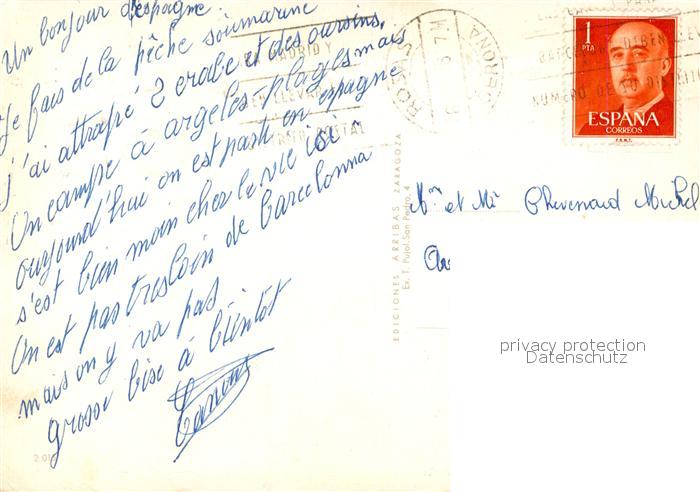 Un bonjour d'espagne.
Je fais de la pêche soumarine
j'ai attrapé 2 crabe et des oursins,
On campe à argelès-plages mais
aujourd'hui on est parti en espagne
s'est bien moin cher la vie ici
On est pas tres loin de barcelonna
mais on y va pas.
grosse bise à bientôt
2.01
EDICIONES ARRIBAS ZARAGOZA
Ex. T. Pujol. San Pedro, 4
1
PTA
ESPAÑA
CORREOS
F.N.M.T.
NUMERO DE SU DISTRITO
POSTAL
GERONA
Mme et Mr Chevenard Michel
privacy protection
Datenschutz